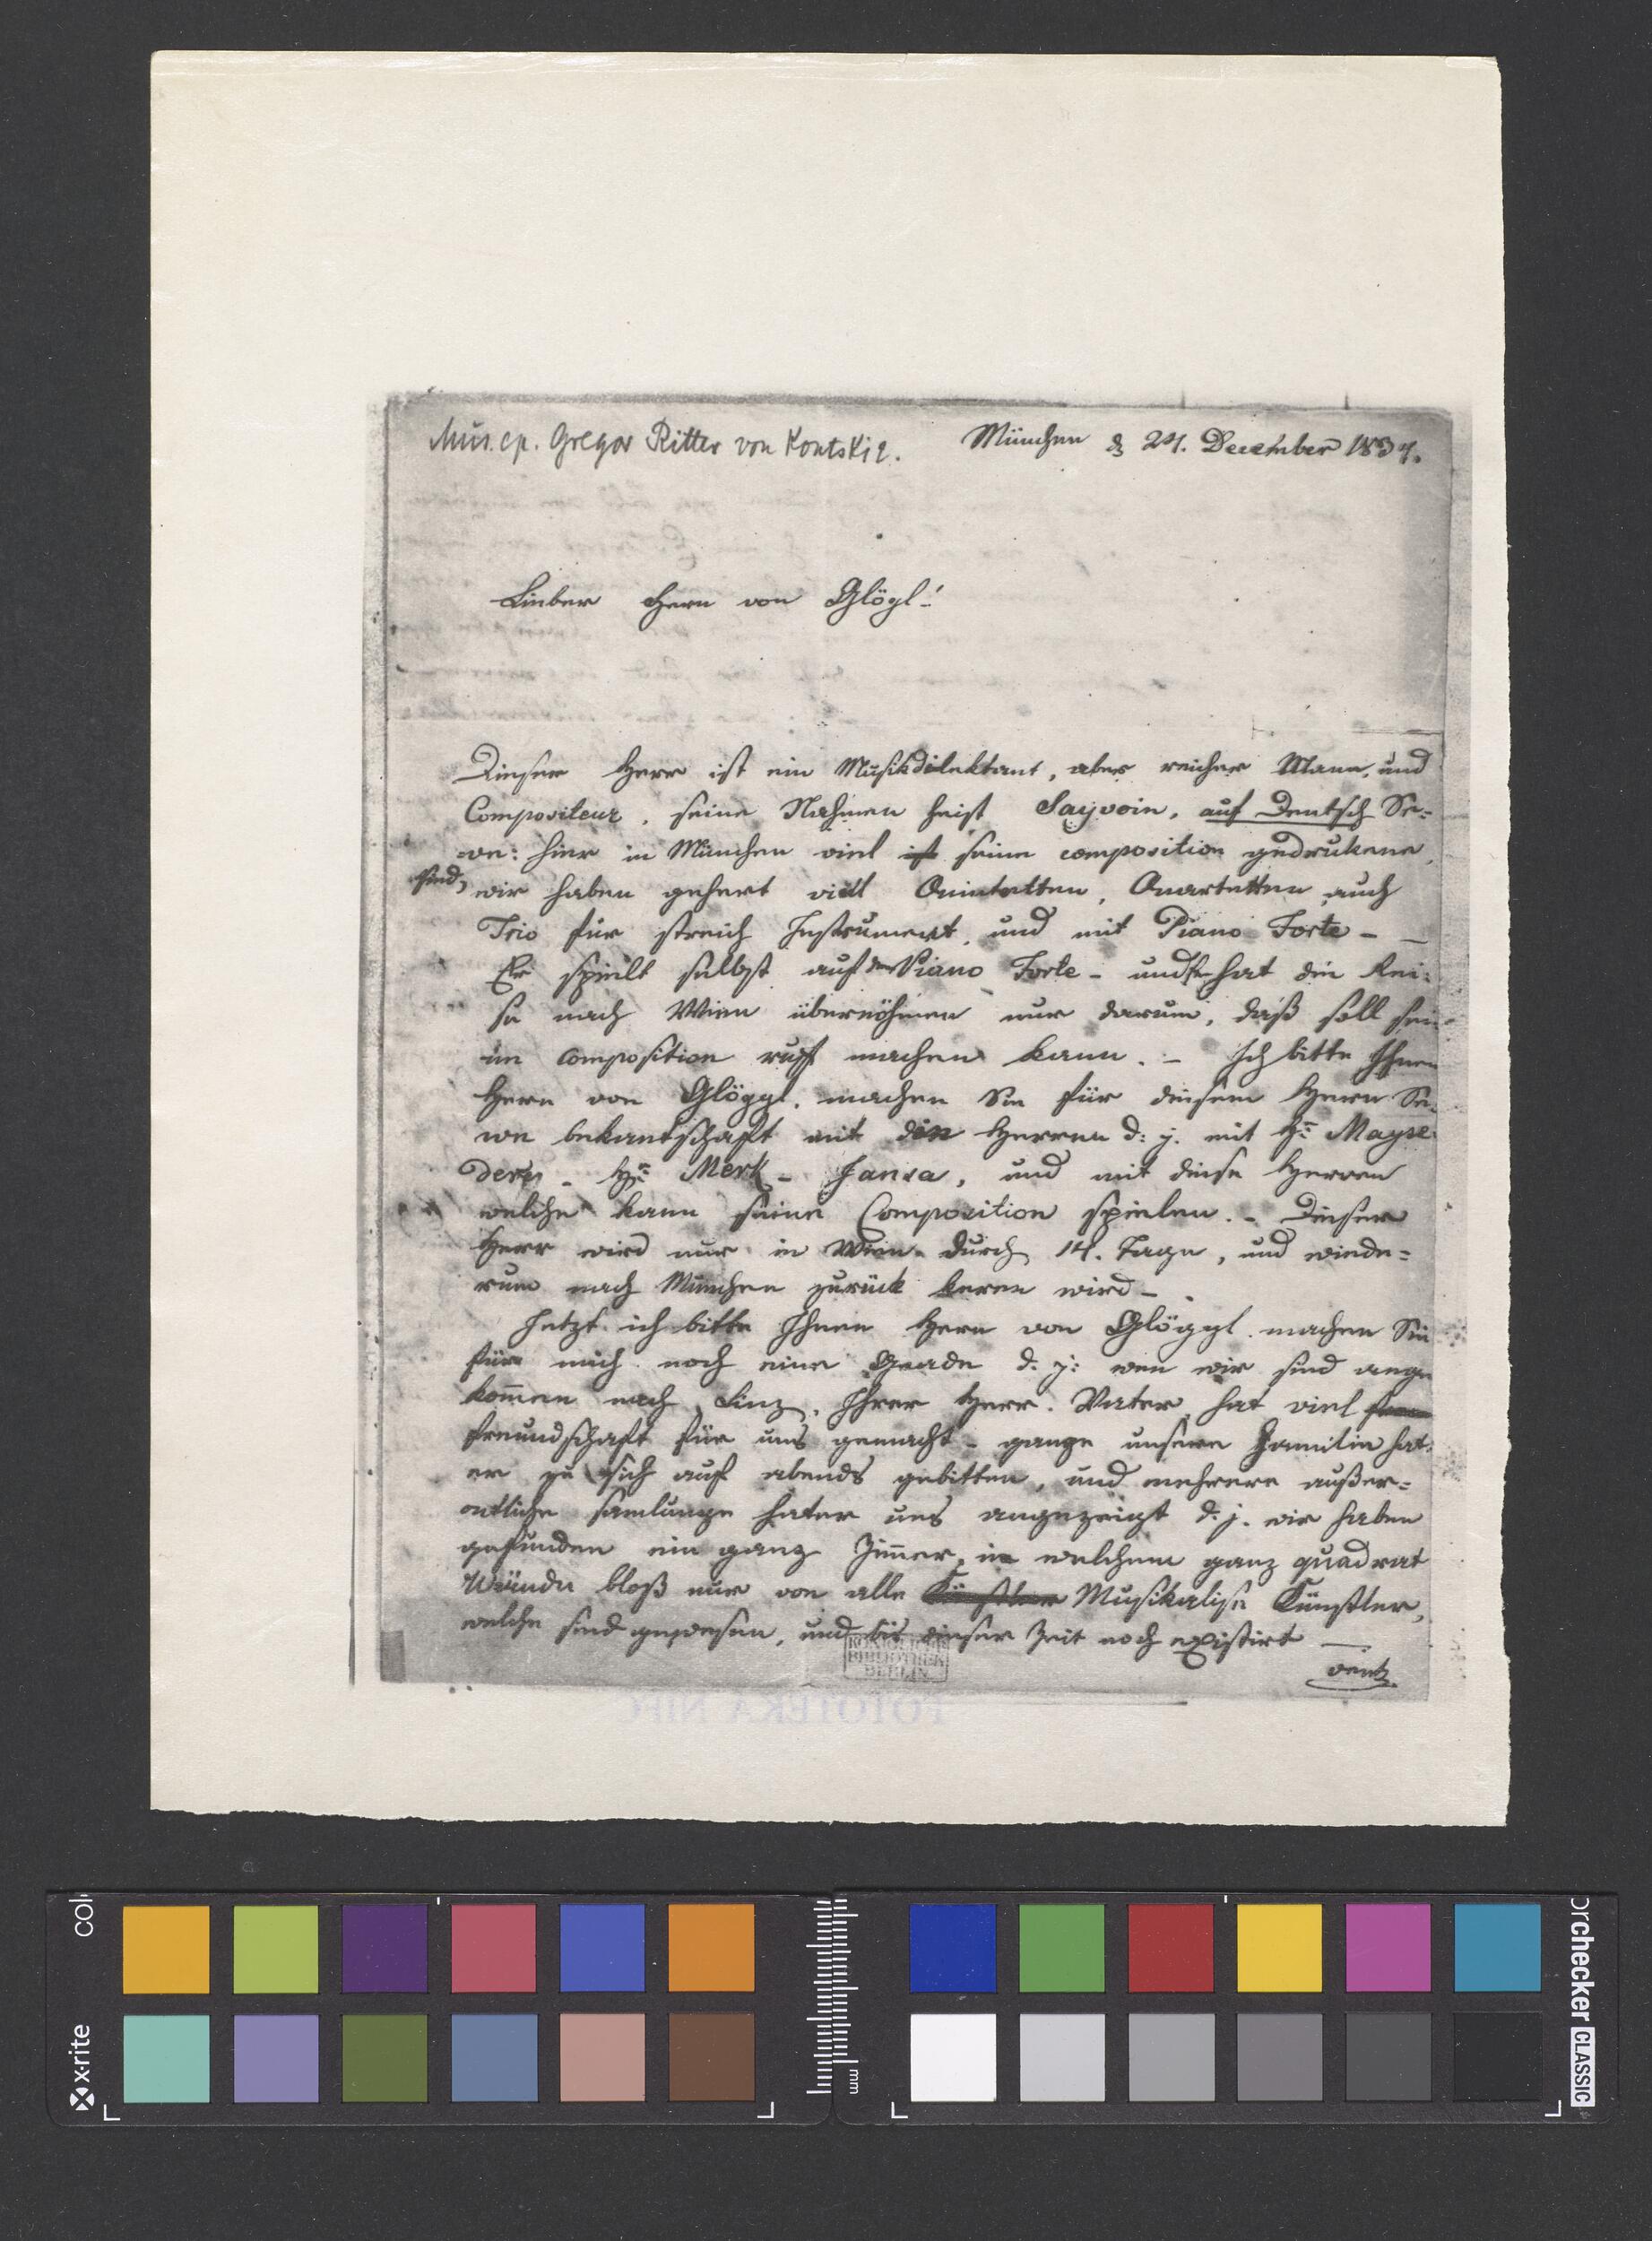 Mus. ep. Gregor Ritter von Kontski 2.
München d 24. December 1837.
Lieber Hern von Glögl!
Dieser Herr ist ein Musikdilektant, aber reicher Mann, und
Compositeur, seine Nahmen heist Sayvoin, auf Deutsch Se=
=ve: hier in München viel ist seine composition gedrukene,
sind, wir haben gehert viell Quintetten, Quartetten auch
Trio für streich Instrument, und mit Piano Forte –
Er spielt selbst auf den Piano Forte – und er hat die Rei=
se nach Wien übernöhmen nur darum, daß soll sei=
ne composition ruff machen kann. – Ich bitte Ihnen
Hern von Glöggl, machen Sie für diesem Herrn Se=
we bekantschaft mit den Herren d: j. mit H: Mayse
dern – H: Merk – Jansa, und mit diese Herren
welche kann seine Composition spielen. – Dieser
Herr wird nur in Wien durch 14. Tage, und wiede=
rum nach München zurück keren wird –
Jetzt ich bitte Ihnen Hern von Glöggl machen Sie
für mich noch eine Gnade d. j: wen wir sind ange
kom̄en nach Linz, Ihrer Herr Vater, hat viel
freundschaft für uns gemacht – ganze unsere Familie hat
er zu sich auf abends gebitten, und mehrere außer=
ontliche samlunge hater uns angezeigt d. j. wir haben
gefunden ein ganz Zim̄er, in welchem ganz quadrat
Wände bloß nur von alle Künstler Musikalise Künstler,
welche sind gewesen, und bis dieser Zeit noch existirt –
KÖNIGLICHE
BIBLIOTHEK
BERLIN
FOTOTEKA NIFC
x-rite
mm
colorchecker CLASSIC